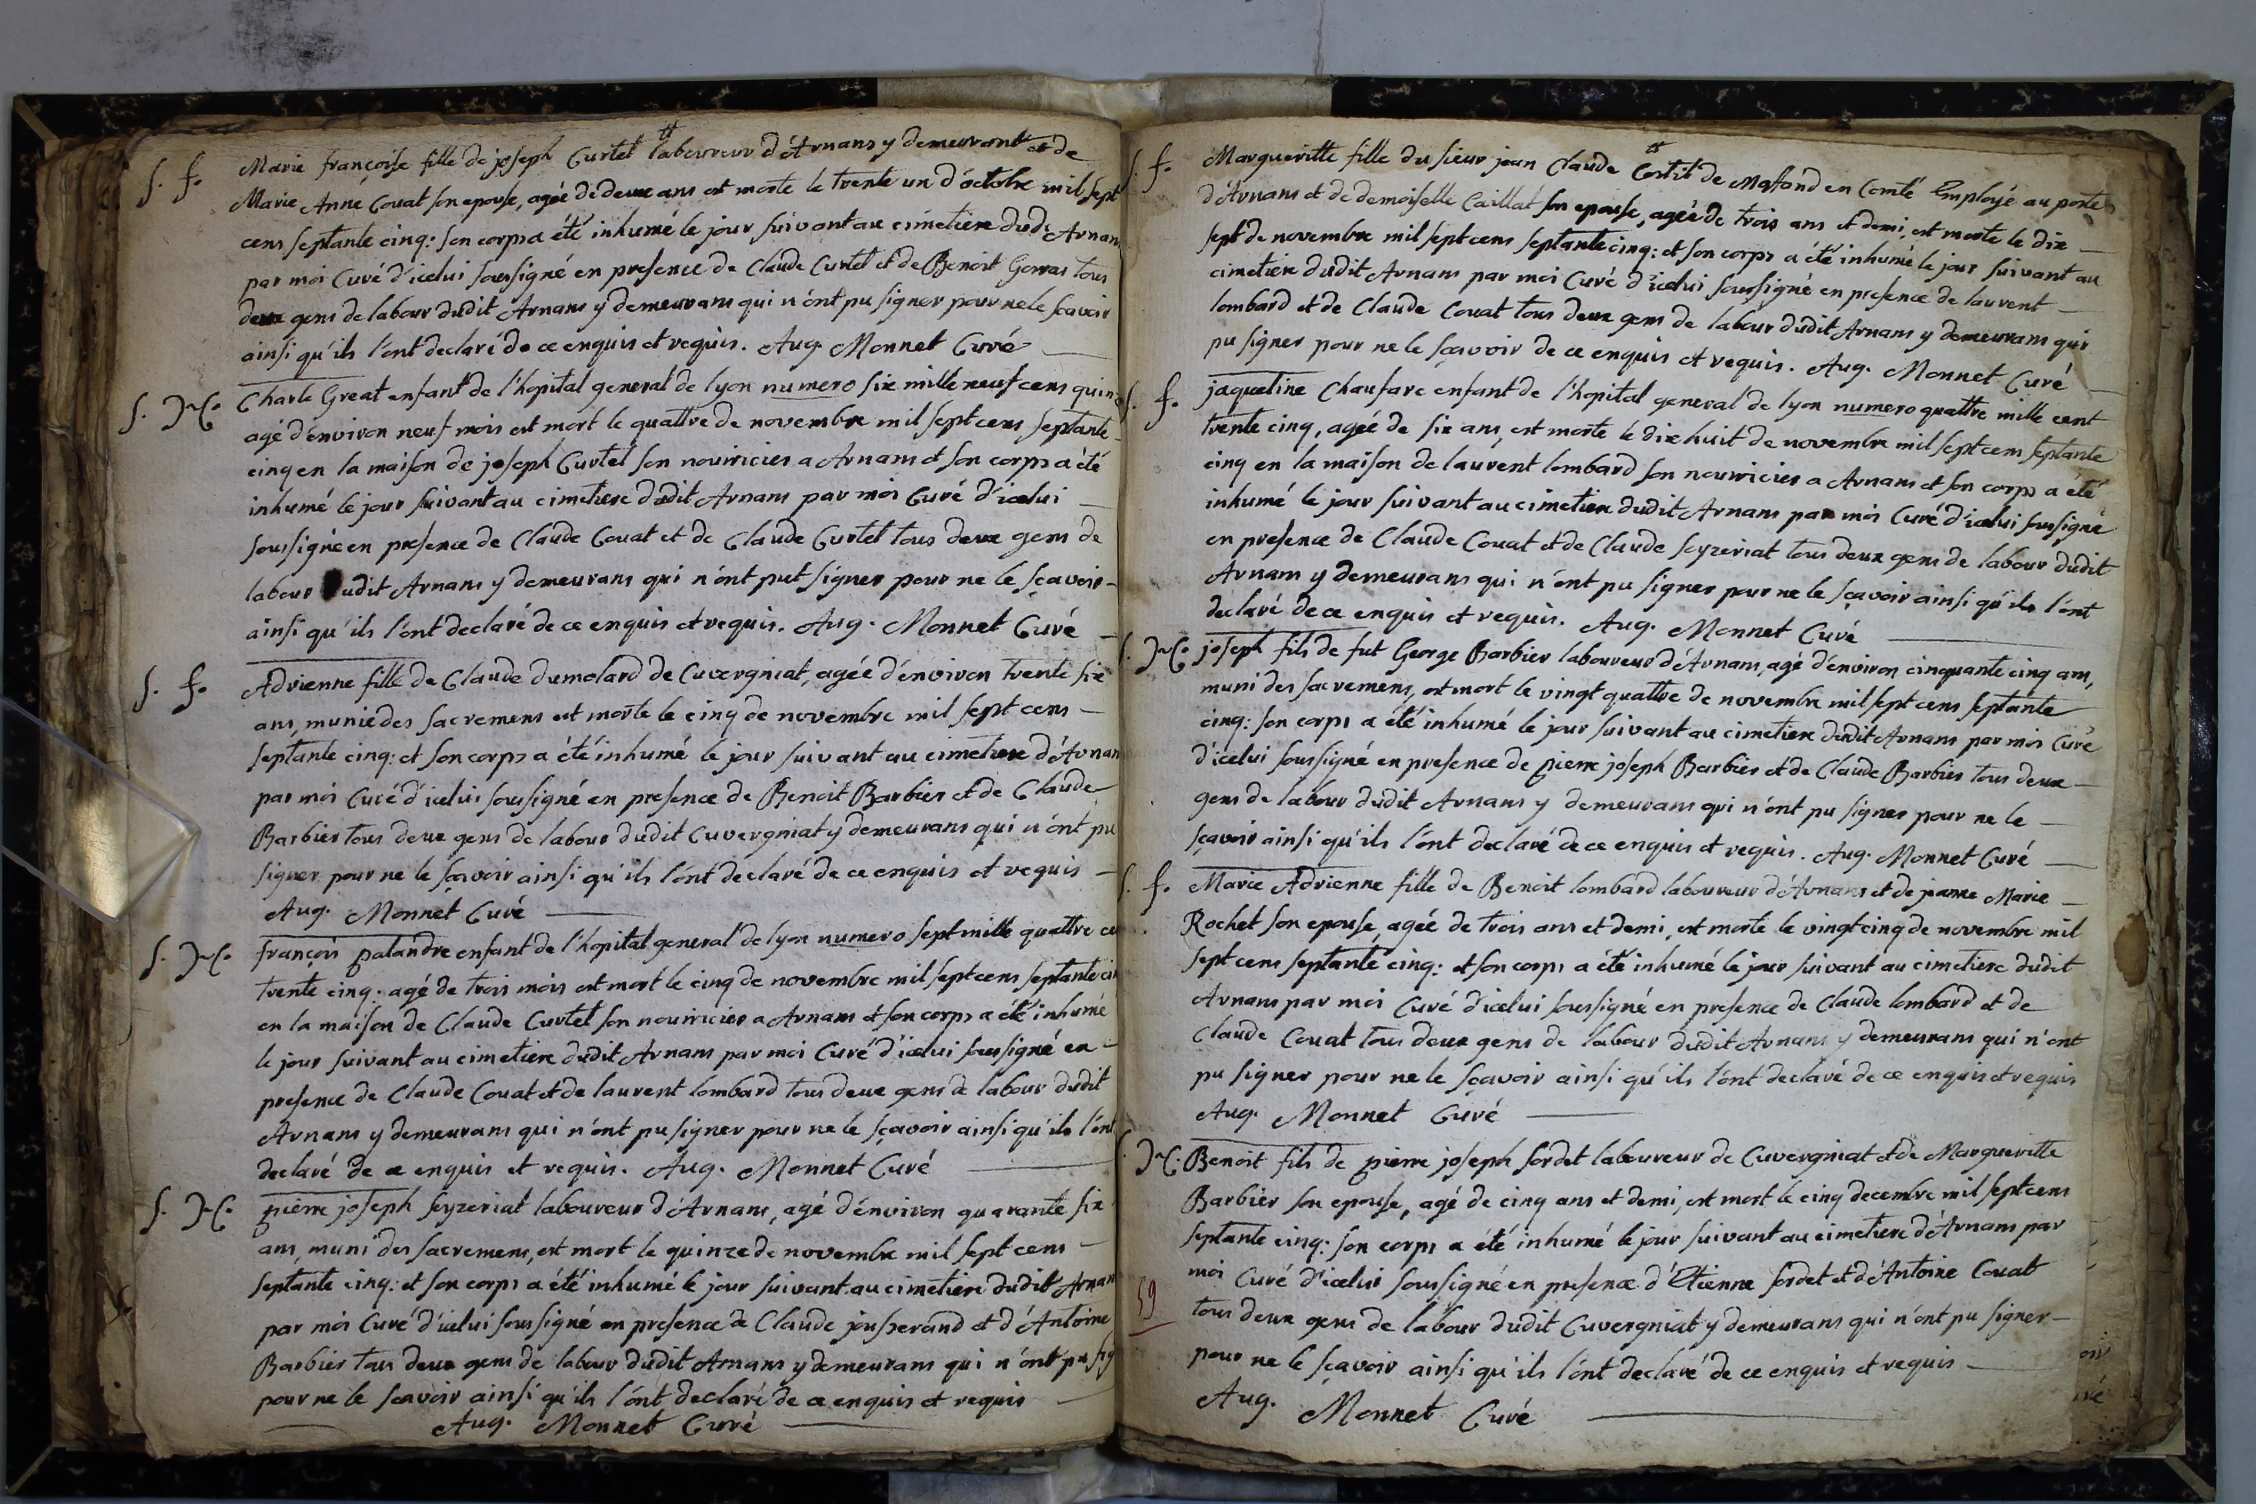 S. f. Marie françoise fille de joseph Curtet laboureur d'Arnans y demeurant et de
Marie Anne Couat son epouse, agée de deux ans est morte le trente un d'octobre mil sept
cens septante cinq: son corps a été inhumé le jour suivant au cimetiere dudt Arnans
par moi Curé d'icelui soussigné en presence de Claude Curtet et de Benoit Gomas tous
deux gens de labour dudit Arnans y demeurans qui n'ont pu signer pour ne le scavoir
ainsi qu'ils l'ont declaré de ce enquis et requis. Aug. Monnet Curé
S. Charle Great enfant de l'hopital general de lyon numero six mille neuf cens quinze
agé d'environ neuf mois est mort le quattre de novembre mil sept cens septante
cinq en la maison de joseph Curtet son nourricier a Arnans et son corps a été
inhumé le jour suivant au cimetiere dudit Arnans par moi Curé d'icelui
soussigné en presence de Claude Couat et de Claude Curtet tous deux gens de
labour dudit Arnans y demeurans qui n'ont put signer pour ne le sçavoir
ainsi qu'ils l'ont declaré de ce enquis et requis. Aug. Monnet Curé
S. f. Adrienne fille de Claude dumolard de Cuvergniat, agée d'environ trente six
ans, munie des sacremens est morte le cinq de novembre mil sept cens
septante cinq: et son corps a été inhumé le jour suivant au cimetiere d'Arnans
par moi Curé d'icelui soussigné en presence de Benoit Barbier et de Claude
Barbier tous deux gens de labour dudit Cuvergniat y demeurans qui n'ont pu
signer pour ne le sçavoir ainsi qu'ils l'ont declaré de ce enquis et requis
Aug. Monnet Curé
S. françois palandre enfant de l'hopital general de lyon numero sept mille quattre ce
trente cinq: agé de trois mois est mort le cinq de novembre mil sept cens septante cin
en la maison de Claude Curtet son nourricier a Arnans et son corps a été inhumé
le jour suivant au cimetiere dudit Arnans par moi Curé d'icelui soussigné en
presence de Claude Couat et de laurent lombard tous deux gens de labour dudit
Arnans y demeurans qui n'ont pu signer pour ne le sçavoir ainsi qu'ils l'ont
declaré de ce enquis et requis. Aug. Monnet Curé
S. pierre joseph seyzeriat laboureur d'Arnans, agé d'environ quarante six
ans, muni des sacremens, est mort le quinze de novembre mil sept cens
septante cinq: et son corps a été inhumé le jour suivant au cimetiere dudit Arnans
par moi Curé d'icelui soussigné en presence de Claude jousserand et d'Antoine
Barbier tous deux gens de labour dudit Arnans y demeurans qui n'ont pu sig
pour ne le scavoir ainsi qu'ils l'ont declaré de ce enquis et requis
Aug. Monnet Curé
S. f. Margueritte fille du sieur jean Claude Cortit de en Comté Employé au poste
d'Arnans et de demoiselle Caillat son epouse, agée de trois ans et demi, est morte le dix
sept de novembre mil sept cens septante cinq: et son corps a été inhumé le jour suivant au
cimetiere dudit Arnans par moi Curé d'icelui soussigné en presence de laurent
lombard et de Claude Couat tous deux gens de labour dudit Arnans y demeurans qui
pu signer pour ne le sçavoir de ce enquis et requis. Aug. Monnet Curé
S. f. jaqueline Chaufare enfant de l'hopital general de lyon numero quattre mille cent
trente cinq, agée de six ans, est morte le dix huit de novembre mil sept cens septante
cinq en la maison de laurent lombard son nourricier a Arnans et son corps a été
inhumé le jour suivant au cimetiere dudit Arnans par moi Curé d'icelui soussigné
en presence de Claude Couat et de Claude seyzeriat tous deux gens de labour dudit
Arnans y demeurans qui n'ont pu signer pour ne le sçavoir ainsi qu'ils l'ont
declaré de ce enquis et requis. Aug. Monnet Curé
joseph fils de fut George Barbier laboureur d'Arnans, agé d'environ cinquante cinq ans,
muni des sacremens, est mort le vingt quattre de novembre mil sept cens septante
cinq: son corps a été inhumé le jour suivant au cimetiere dudit Arnans par moi Curé
d'icelui soussigné en presence de pierre joseph Barbier et de Claude Barbier tous deux
gens de labour dudit Arnans y demeurans qui n'ont pu signer pour ne le
sçavoir ainsi qu'ils l'ont declaré de ce enquis et requis. Aug. Monnet Curé
S. f. Marie Adrienne fille de Benoit lombard laboureur d'Arnans et de jeanne Marie
Rochet son epouse, agée de trois ans et demi, est morte le vingt cinq de novembre mil
sept cens septante cinq: et son corps a été inhumé le jour suivant au cimetiere dudit
Arnans par moi Curé d'icelui soussigné en presence de Claude lombard et de
Claude Couat tous deux gens de labour dudit Arnans y demeurans qui n'ont
pu signer pour ne le sçavoir ainsi qu'ils l'ont declaré de ce enquis et requis
Aug. Monnet Curé
Benoit fils de pierre joseph sordet laboureur de Cuvergniat et de Margueritte
Barbier son epouse, agé de cinq ans et demi, est mort le cinq decembre mil sept cens
septante cinq: son corps a été inhumé le jour suivant au cimetiere d'Arnans par
moi Curé d'icelui soussigné en presence d'Etienne sordet et d'Antoine Couat
59 tous deux gens de labour dudit Cuvergniat y demeurans qui n'ont pu signer
pour ne le sçavoir ainsi qu'ils l'ont declaré de ce enquis et requis
Aug. Monnet Curé